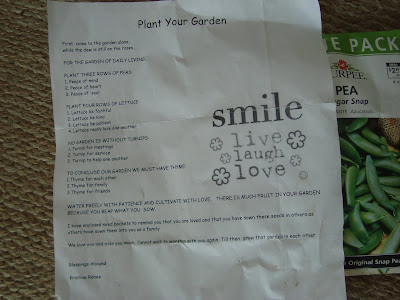 Plant Your Garden
First, come to the garden alone,
while the dew is still on the roses...
FOR THE GARDEN OF DAILY LIVING:
PLANT THREE ROWS OF PEAS:
1. Peace of mind
2. Peace of heart
3. Peace of soul
PLANT FOUR ROWS OF LETTUCE:
1. Lettuce be faithful
2. Lettuce be kind
3. Lettuce be patient
4. Lettuce really love one another
NO GARDEN IS WITHOUT TURNIPS:
1. Turnip for meetings
2. Turnip for service
3. Turnip to help one another
TO CONCLUDE OUR GARDEN WE MUST HAVE THYME:
1. Thyme for each other
2. Thyme for family
3. Thyme for friends
WATER FREELY WITH PATIENCE AND CULTIVATE WITH LOVE. THERE IS MUCH FRUIT IN YOUR GARDEN
BECAUSE YOU REAP WHAT YOU SOW.
I have enclosed seed packets to remind you that you are loved and that you have sown these seeds in others as
others have sown them into you as a family.
We love you and miss you much. Cannot wait to worship with you again. Till then, grow that garden in each other.
Blessings Abound
smile
live
laugh
love
E PACK
BURPEE
PEA
gar Snap
Original Snap Pea